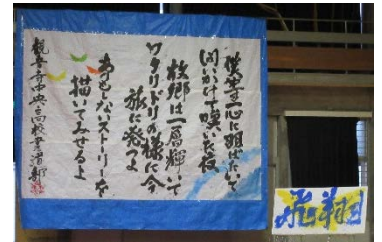 僕等一心に羽ばたいて
問いかけて嘆いた夜
故郷は一層輝いて
ワタリドリの様に今
旅に発つよ
ありもしないストーリーを
描いてみせるよ
観音寺中央高校書道部
飛翔